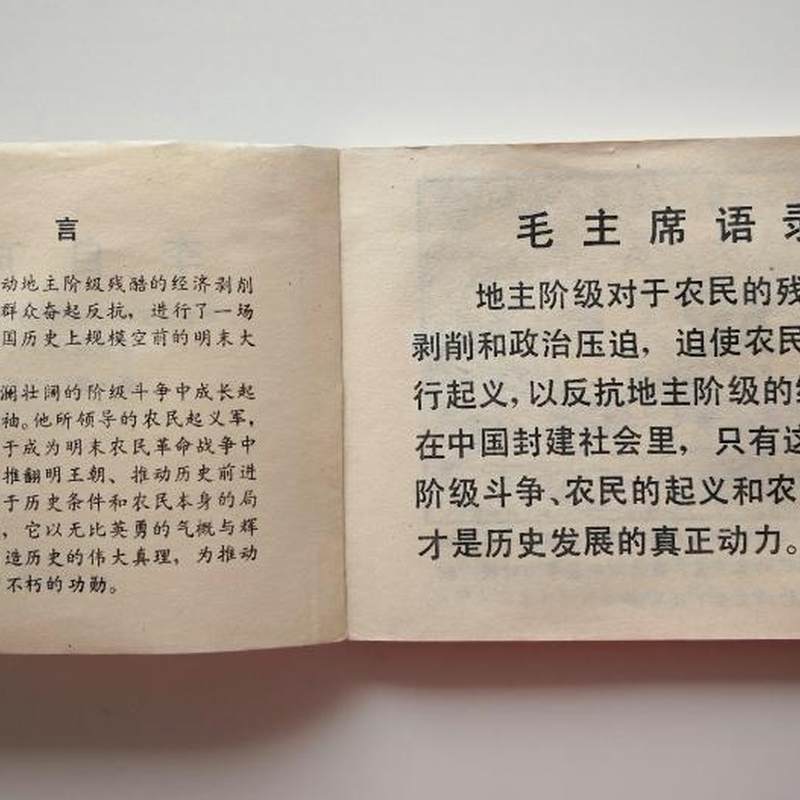 言
动地主阶级残酷的经济剥削
群众奋起反抗，进行了一场
国历史上规模空前的明末大
澜壮阔的阶级斗争中成长起
袖。他所领导的农民起义军，
于成为明末农民革命战争中
推翻明王朝、推动历史前进
于历史条件和农民本身的局
，它以无比英勇的气概与辉
造历史的伟大真理，为推动
不朽的功勋。
毛主席语录
地主阶级对于农民的残
剥削和政治压迫，迫使农民
行起义，以反抗地主阶级的
在中国封建社会里，只有这
阶级斗争、农民的起义和农
才是历史发展的真正动力。